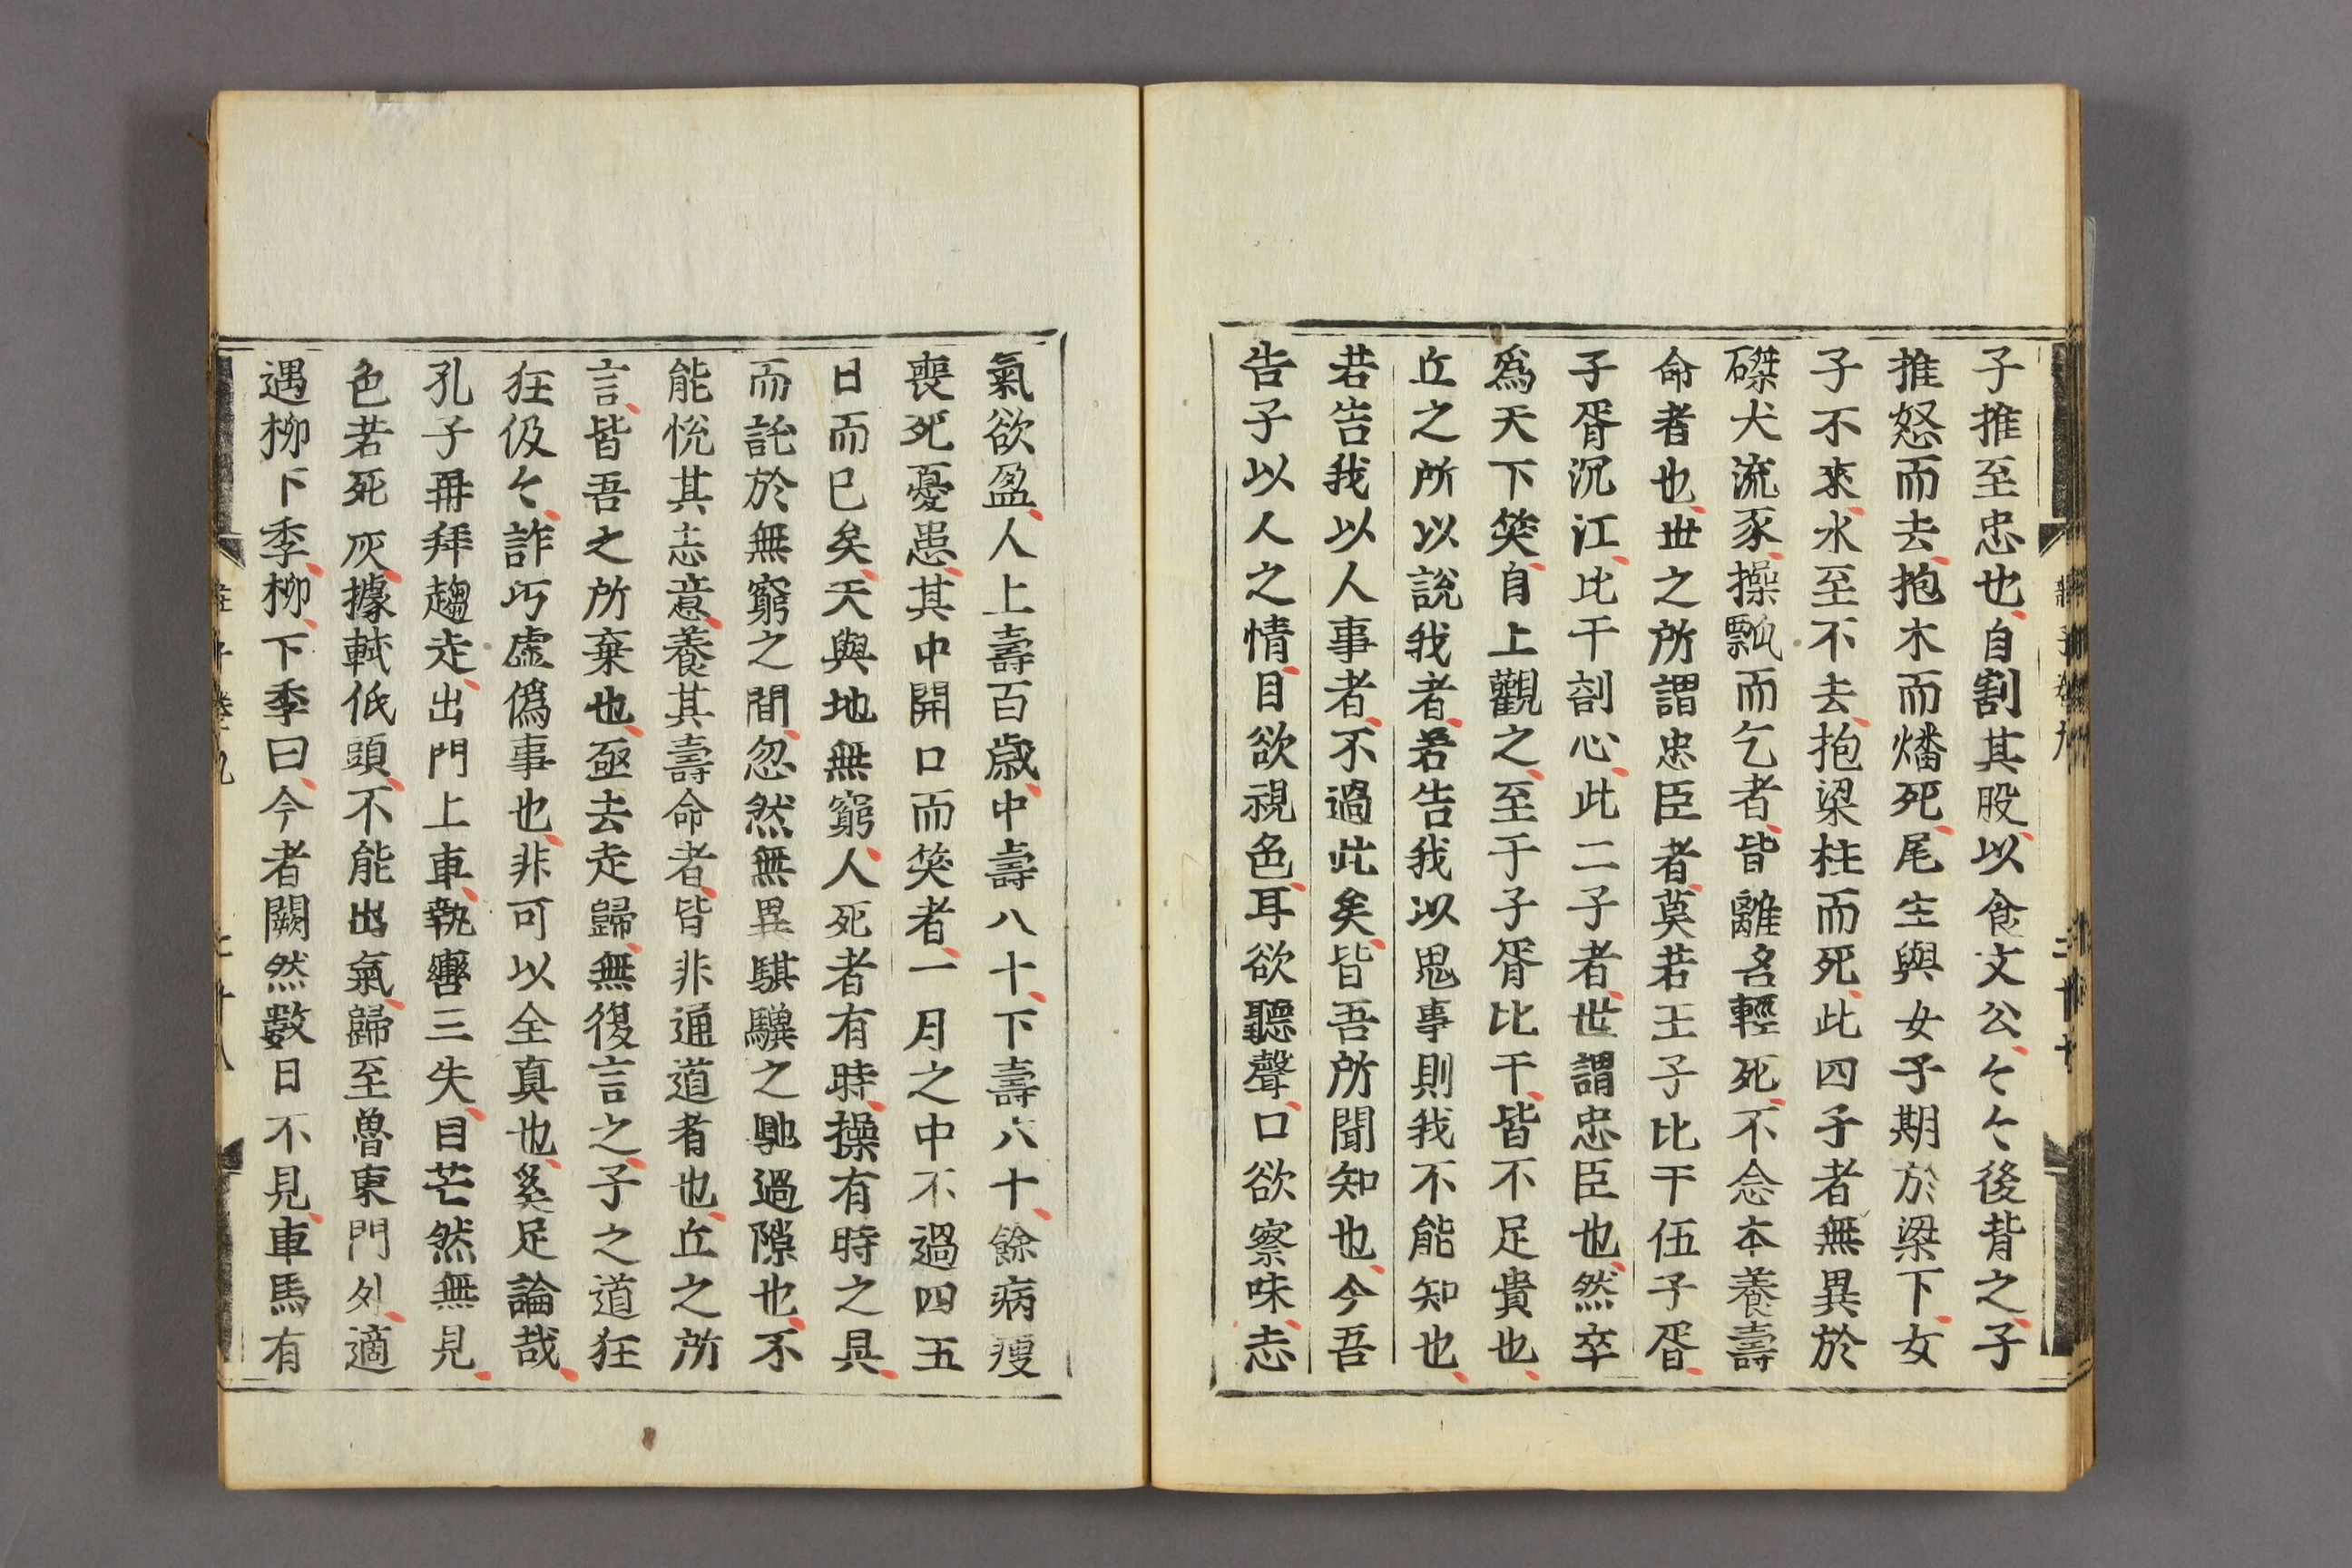 子推至忠也自割其股以食文公々々後背之子
推怒而去抱木而燔死尾生與女子期於梁下女
子不來水至不去抱梁柱而死此四子者無異於
磔犬流豕操瓢而乞者皆離名輕死不念本養壽
命者也世之所謂忠臣者莫若王子比干伍子胥
子胥沉江比干剖心此二子者世謂忠臣也然卒
爲天下笑自上觀之至于子胥比干皆不足貴也
丘之所以說我者若告我以鬼事則我不能知也
若告我以人事者不過此矣皆吾所聞知也今吾
告子以人之情目欲視色耳欲聽聲口欲察味志
氣欲盈人上壽百歲中壽八十下壽六十餘病瘦
喪死憂患其中開口而笑者一月之中不過四五
日而已矣天與地無窮人死者有時操有時之具
而託於無窮之間忽然無異騏驥之馳過隙也不
能悅其志意養其壽命者皆非通道者也丘之所
言皆吾之所棄也亟去走歸無復言之子之道狂
狂伋々詐巧虛僞事也非可以全真也奚足論哉
孔子再拜趨走出門上車執轡三失目芒然無見
色若死灰據軾低頭不能出氣歸至魯東門外適
遇柳下季柳下季曰今者闕然數日不見車馬有